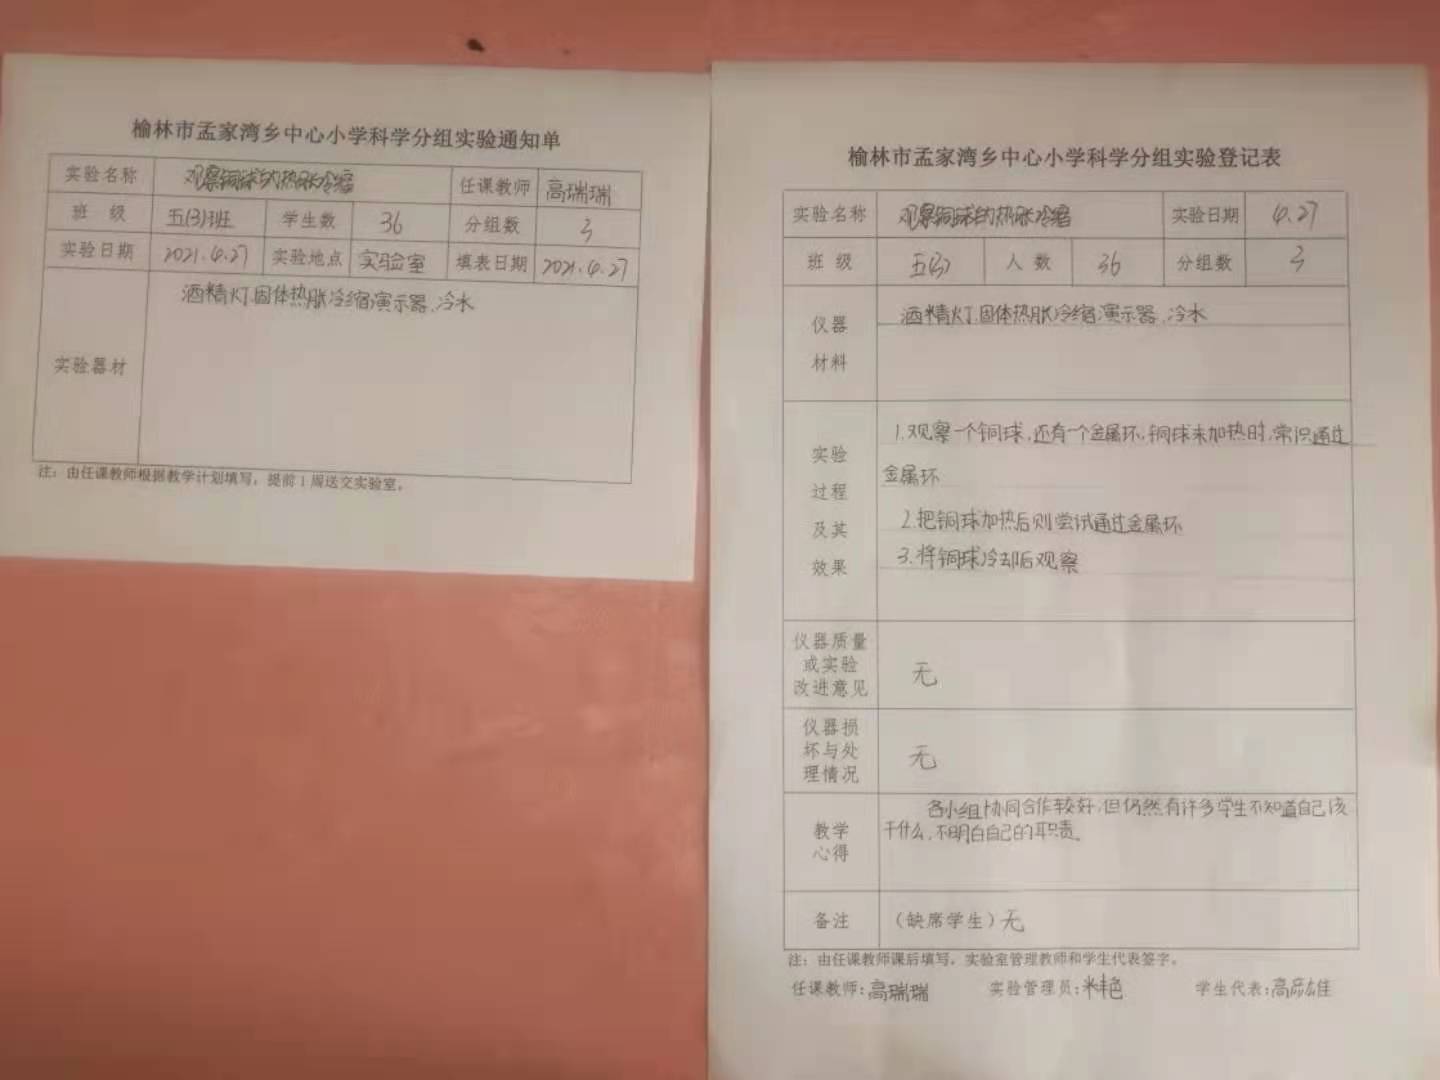 榆林市孟家湾乡中心小学科学分组实验通知单
实验名称 观察铜球的热胀冷缩 任课教师 高瑞瑞
班 级 五(3)班 学生数 36 分组数 3
实验日期 2021.4.27 实验地点 实验室 填表日期 2021.4.27
实验器材 酒精灯.固体热胀冷缩演示器.冷水
注：由任课教师根据教学计划填写，提前1周送交实验室。
榆林市孟家湾乡中心小学科学分组实验登记表
实验名称 观察铜球的热胀冷缩 实验日期 4.27
班 级 五(3) 人 数 36 分组数 3
仪器
材料
酒精灯.固体热胀冷缩演示器.冷水
实验
过程
及其
效果
1.观察一个铜球,还有一个金属环,铜球未加热时,常识通过
金属环
2.把铜球加热后则尝试通过金属环
3.将铜球冷却后观察
仪器质量
或实验
改进意见
无
仪器损
坏与处
理情况
无
教学
心得
各小组协同合作较好,但仍然有许多学生不知道自己该
干什么,不明白自己的职责。
备注 （缺席学生）无
注：由任课教师课后填写，实验室管理教师和学生代表签字。
任课教师:高瑞瑞 实验管理员: 学生代表:高